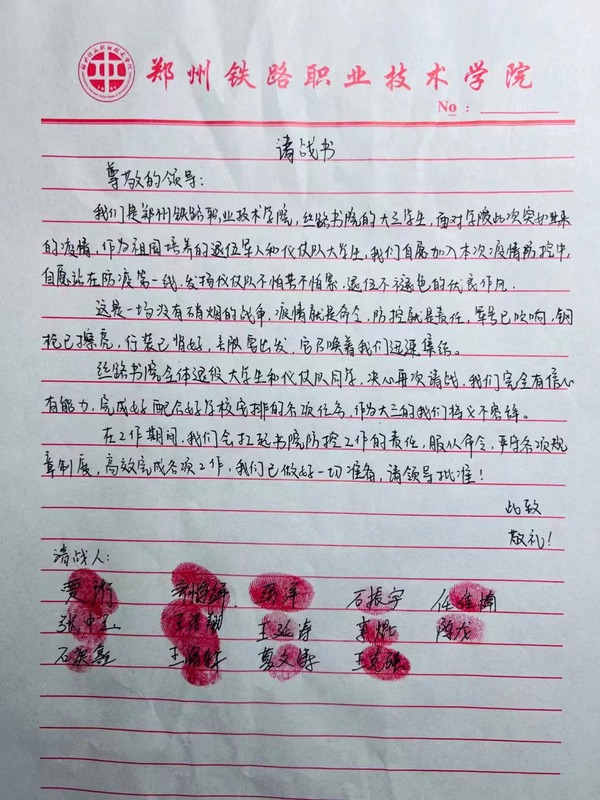 郑州铁路职业技术学院
No：
请战书
尊敬的领导：
我们是郑州铁路职业技术学院，丝路书院的大三学生，面对学院此次突如其来
的疫情，作为祖国培养的退伍军人和仪仗队大学生，我们自愿加入本次疫情防控中，
自愿站在防疫第一线，发扬仪仗队不怕苦不怕累，退伍不褪色的优良作风。
这是一场没有硝烟的战争，疫情就是命令，防控就是责任，军号已吹响，钢
枪已擦亮，行装已背好，部队要出发，官兵唤着我们迅速集结。
丝路书院全体退役大学生和仪仗队同学，决心再次请战，我们完全有信心
有能力，完成好配合好学校安排的各项任务，作为大三的我们将义不容辞。
在工作期间，我们会扛起书院防控工作的责任，服从命令，严守各项规
章制度，高效完成各项工作，我们已做好一切准备，请领导批准！
此致
敬礼！
请战人：
石振宇
王延涛